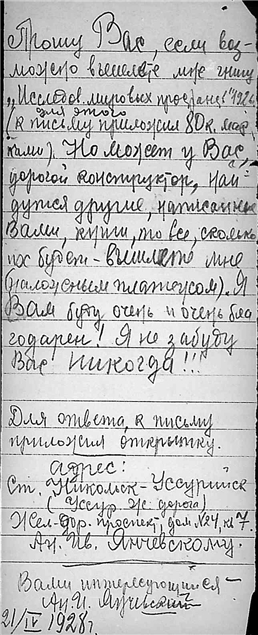 Прошу Вас, если воз-
можно вышлете мне книгу
„Исследов. мировых простран." 192
для этого
(к письму приложил 80 к. мар-
ками). Но может у Вас,
дорогой конструктор, най-
дутся другие, написанные
Вами, книги, то все, сколько
их будет – вышлете мне
(наложеным платежом). Я
Вам буду очень и очень бла
годарен! Я не забуду
Вас никогда!!!
Для ответа к письму
приложил открытку.
адрес:
Ст. Никольск-Уссурийск
(Уссур. Ж. дорога)
Жел-дор. проспект, дом №24, кв 7.
Ан. Ив. Янчевскому.
Вами интересующийся –
Ан. И. Янчевский
21/IV 1928 г.